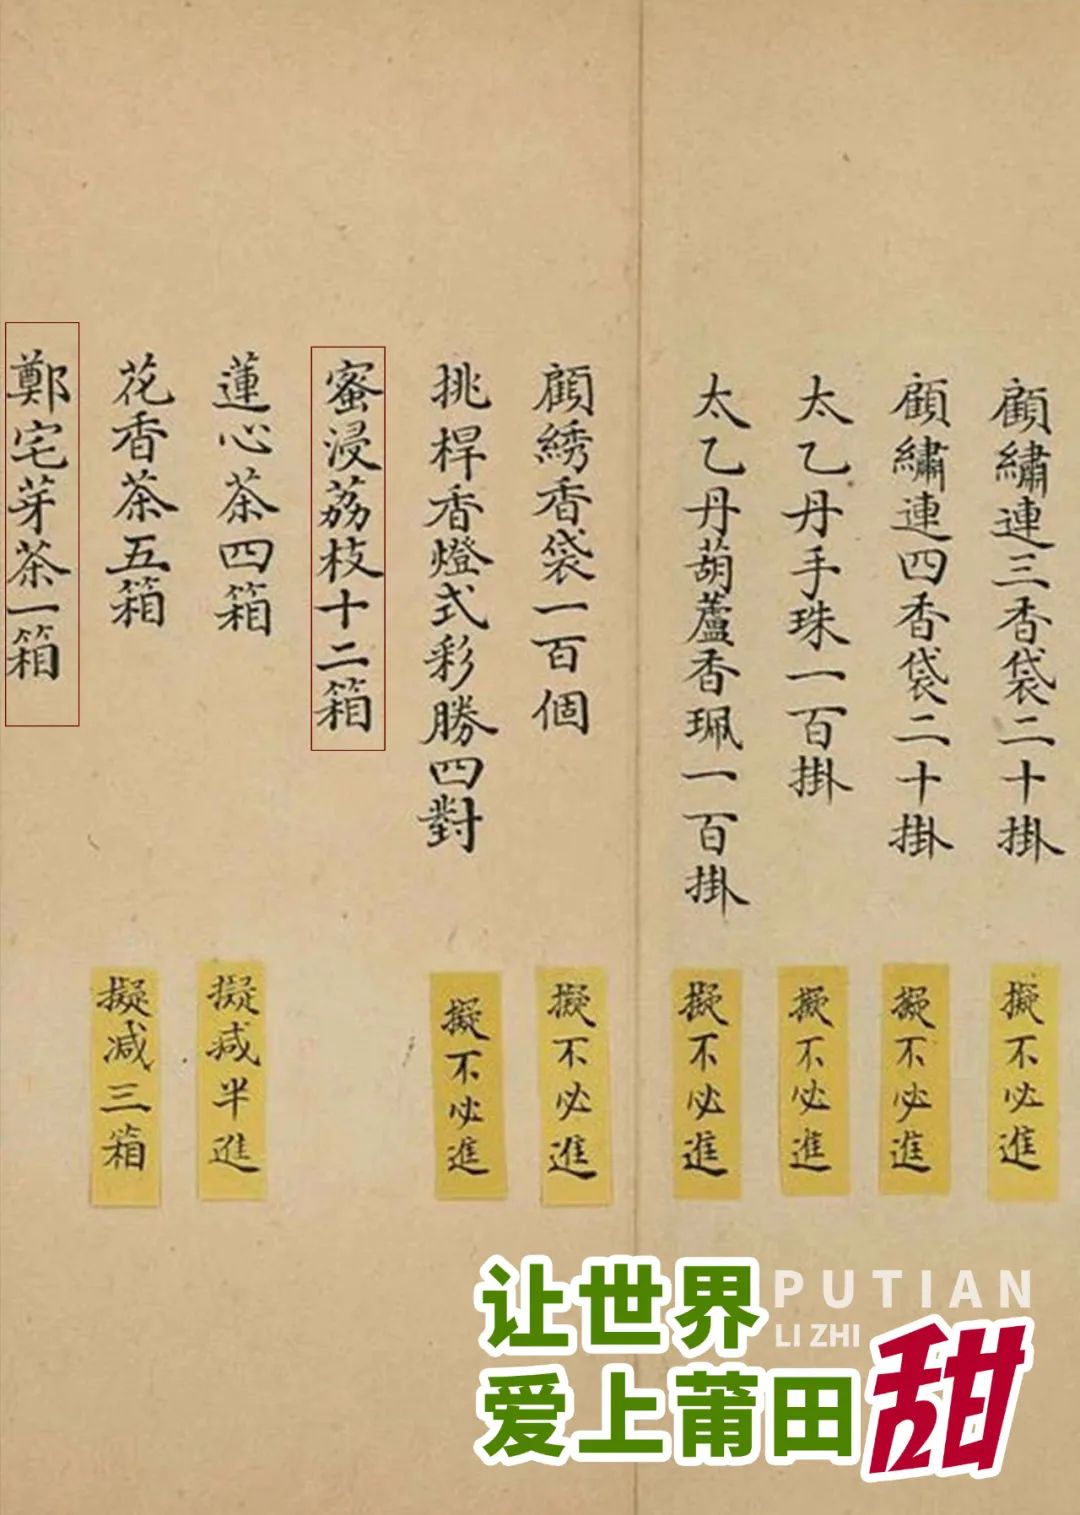 顧繡連三香袋二十掛
擬不必進
顧繡連四香袋二十掛
擬不必進
太乙丹手珠一百掛
擬不必進
太乙丹葫蘆香珮一百掛
擬不必進
顧綉香袋一百個
擬不必進
挑桿香燈式彩勝四對
擬不必進
蜜浸荔枝十二箱
蓮心茶四箱
擬減半進
花香茶五箱
擬減三箱
鄭宅芽茶一箱
让世界
PUTIAN
LI ZHI
爱上莆田甜